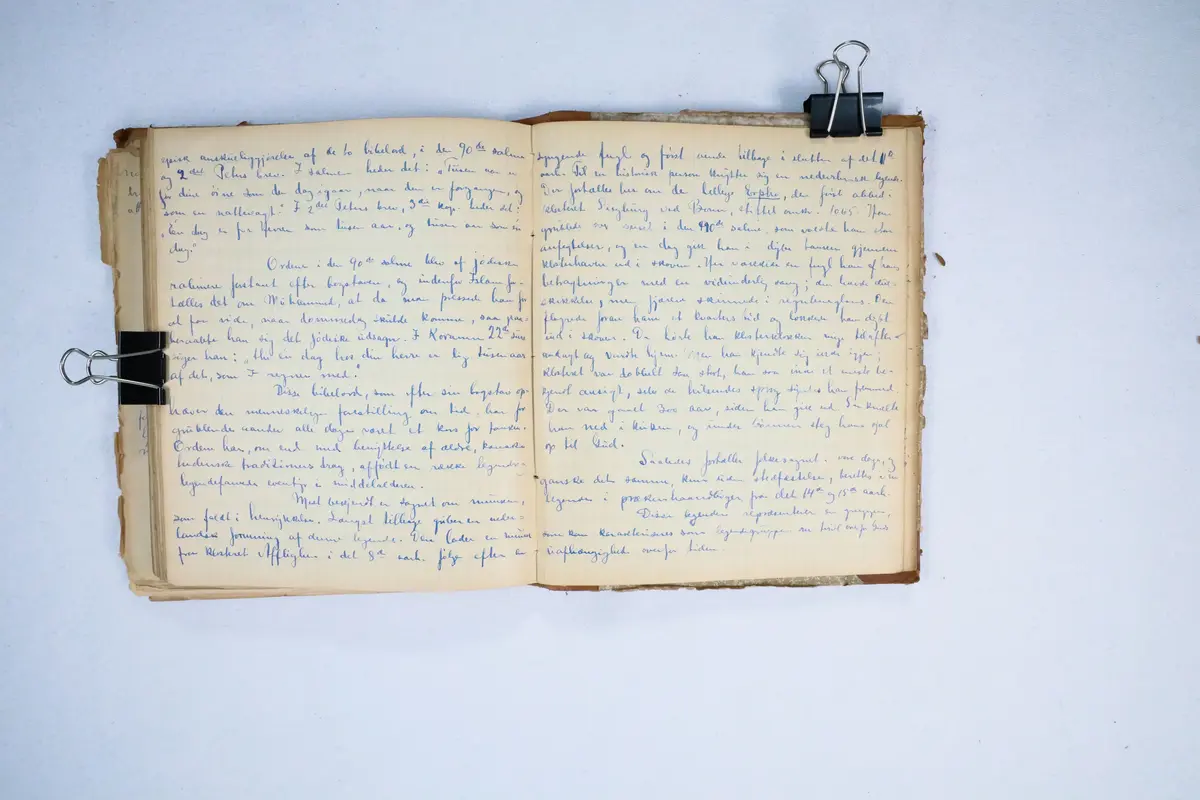 anskueliggjørelse af de to bibelord, i den 90de salme
og 2det Peters brev. I salmen heder det: "Tusen aar er
for dine öine som den dag igaar, naar den er forgangen, og
som en nattevagt." I 2det Peters brev, 3die kap. heder det:
"Én dag er for Herren som tusen aar, og tusen aar som én
dag."
Ordene i den 90de salme blev af jödiske
rabinere fortaat efter bogstaven, og indenfor Islam for-
tælles det om Mohammed, at da man pressede ham for
at faa vide, naar dommedag skulde komme, saa paa-
beraabte han sig det jödiske udsagn. I Koranens 22de
siger han: "Thi én dag hos din herre er lig tusen aar
af det, som I regner med."
Disse bibelord, som efter sin bogstav op-
hæver den menneskelige forstilling om tid, har for
grublende aander alle dage været et kors for tanken.
Ordene har, om end med benyttelse af ældre,
hedenske traditioners drag, affödt en række legende-
legendefarvede eventyr i middelalderen.
Mest bekjendt er sagnet om munken,
som faldt i henrykkelse. Langst tilbage griber en neder-
landsk formning af denne legende. Den lader en munk
fra klostret Afflighem i det 9de aarh. följe efter en
syngende fugl og först vende tilbage i slutten af det 11te
aarh. Til en historisk person knytter sig en nederrhinsk legende.
Der fortælles her om den hellige Erpho, den först abbed i
klostret Siegburg ved Bonn, stiftet omkr. 1065. Han
grublede over verset i den 90de salme, som voldte ham
anfegtelser, og en dag gik han i dybe tanker gjennem
klosterhaven ud i skoven. Her vækkede en fugl ham af hans
betragtninger med en vidunderlig sang; den havde
skikkelse, men fjæren skinnede i regnbueglans. Den
flagrede foran ham et kvarters tid og lokkede ham dybt
ind i skoven. Da hörte han klosterklokken
og vendte hjem. Men han kjendte sig ikke igjen;
klostret var dobbelt saa stort, han saa inde et eneste be-
kjendt ansigt, selv de hilsendes sprog syntes ham fremmed.
Der var gaaet 300 aar, siden han gik ud. Da knælte
han ned i kirken, og under bönnen steg hans sjæl
op til Gud.
Saaledes fortæller folkesagnet i vore dage, og
ganske det samme, kun uden stedfæstelse, berettes i
legender i prækenhaandböger fra det 14de og 15de aarh.
Disse legender repræsenterer en gruppe,
som kan karakteriseres som legendegruppen
uafhængighed overfor tiden.